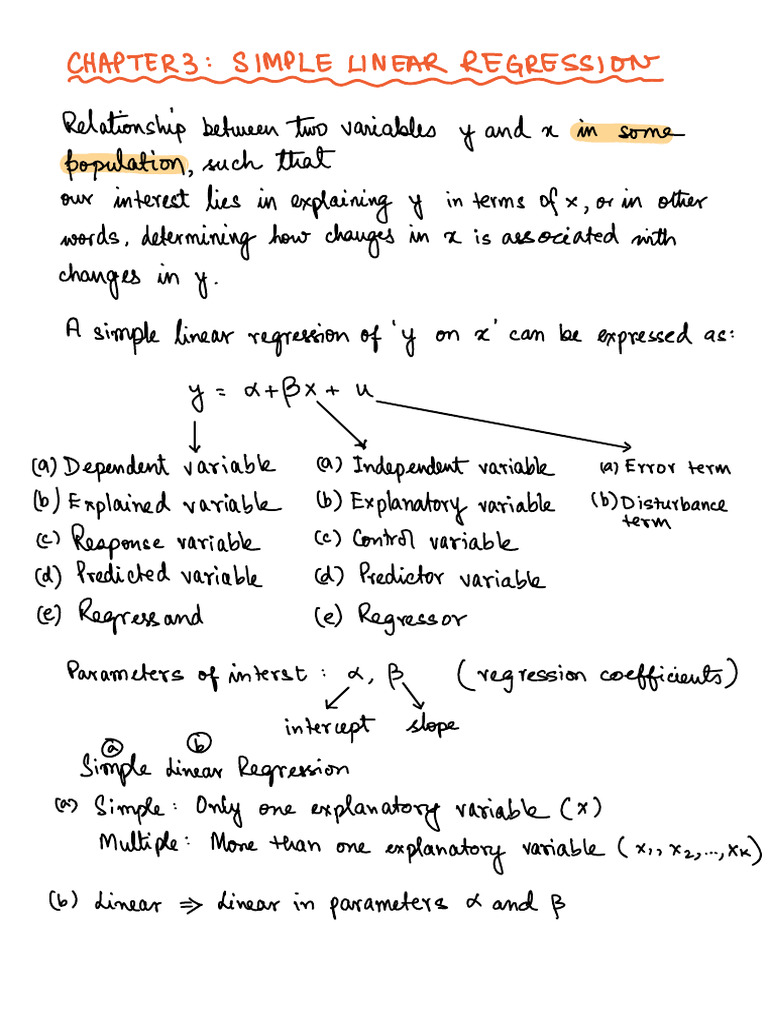 CHAPTER 3: SIMPLE LINEAR REGRESSION
Relationship between two variables y and x in some
population, such that
our interest lies in explaining y in terms of x, or in other
words, determining how changes in x is associated with
changes in y.
A simple linear regression of 'y on x' can be expressed as:
y = α + βx + u
(a) Dependent variable (a) Independent variable (a) Error term
(b) Explained variable (b) Explanatory variable (b) Disturbance
term
(c) Response variable (c) Control variable
(d) Predicted variable (d) Predictor variable
(e) Regressand (e) Regressor
Parameters of interst : α, β (regression coefficients)
intercept slope
a b
Simple Linear Regression
(a) Simple: Only one explanatory variable (x)
Multiple: More than one explanatory variable (x1, x2, ..., xk)
(b) Linear ⇒ Linear in parameters α and β